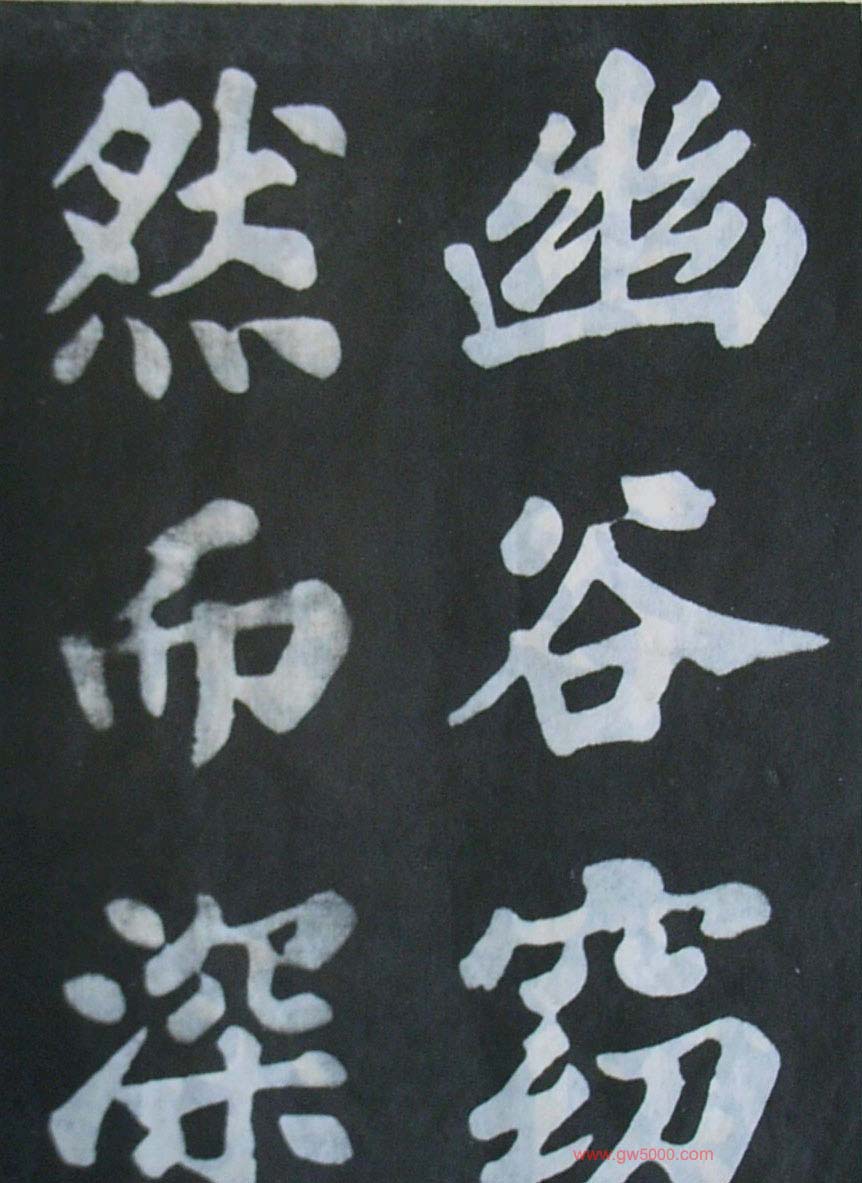 幽谷窈
然而深
www.gw5000.com